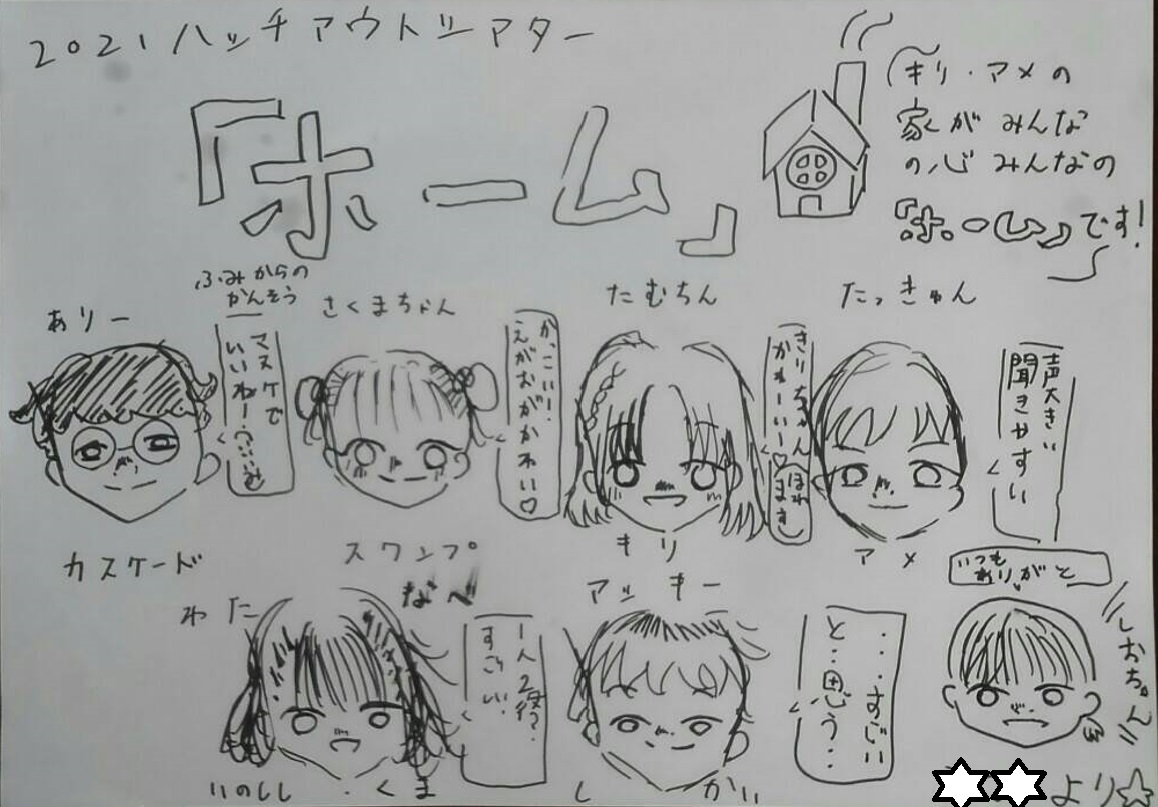 2021ハッチアウトシアター
『ホーム』
キリ・アメの
家がみんな
の心みんなの
『ホーム』です!
ありー
ふみからの
かんそう
さくまちゃん
たむちん
たっきゅん
マヌケで
いいねー
かっこいい!
えがおがかわいい♡
きりちゃん
かわいーいー♡
ほれ
ます
声大きい
聞きやすい
カスケード
スワンプ
キリ
アメ
いつも
ありがと
わた
なべ
アッキー
一人2役?
すごい!
・・・すごい
と・・思う・・
しおちゃん
いのしし・くま
しかい
より☆